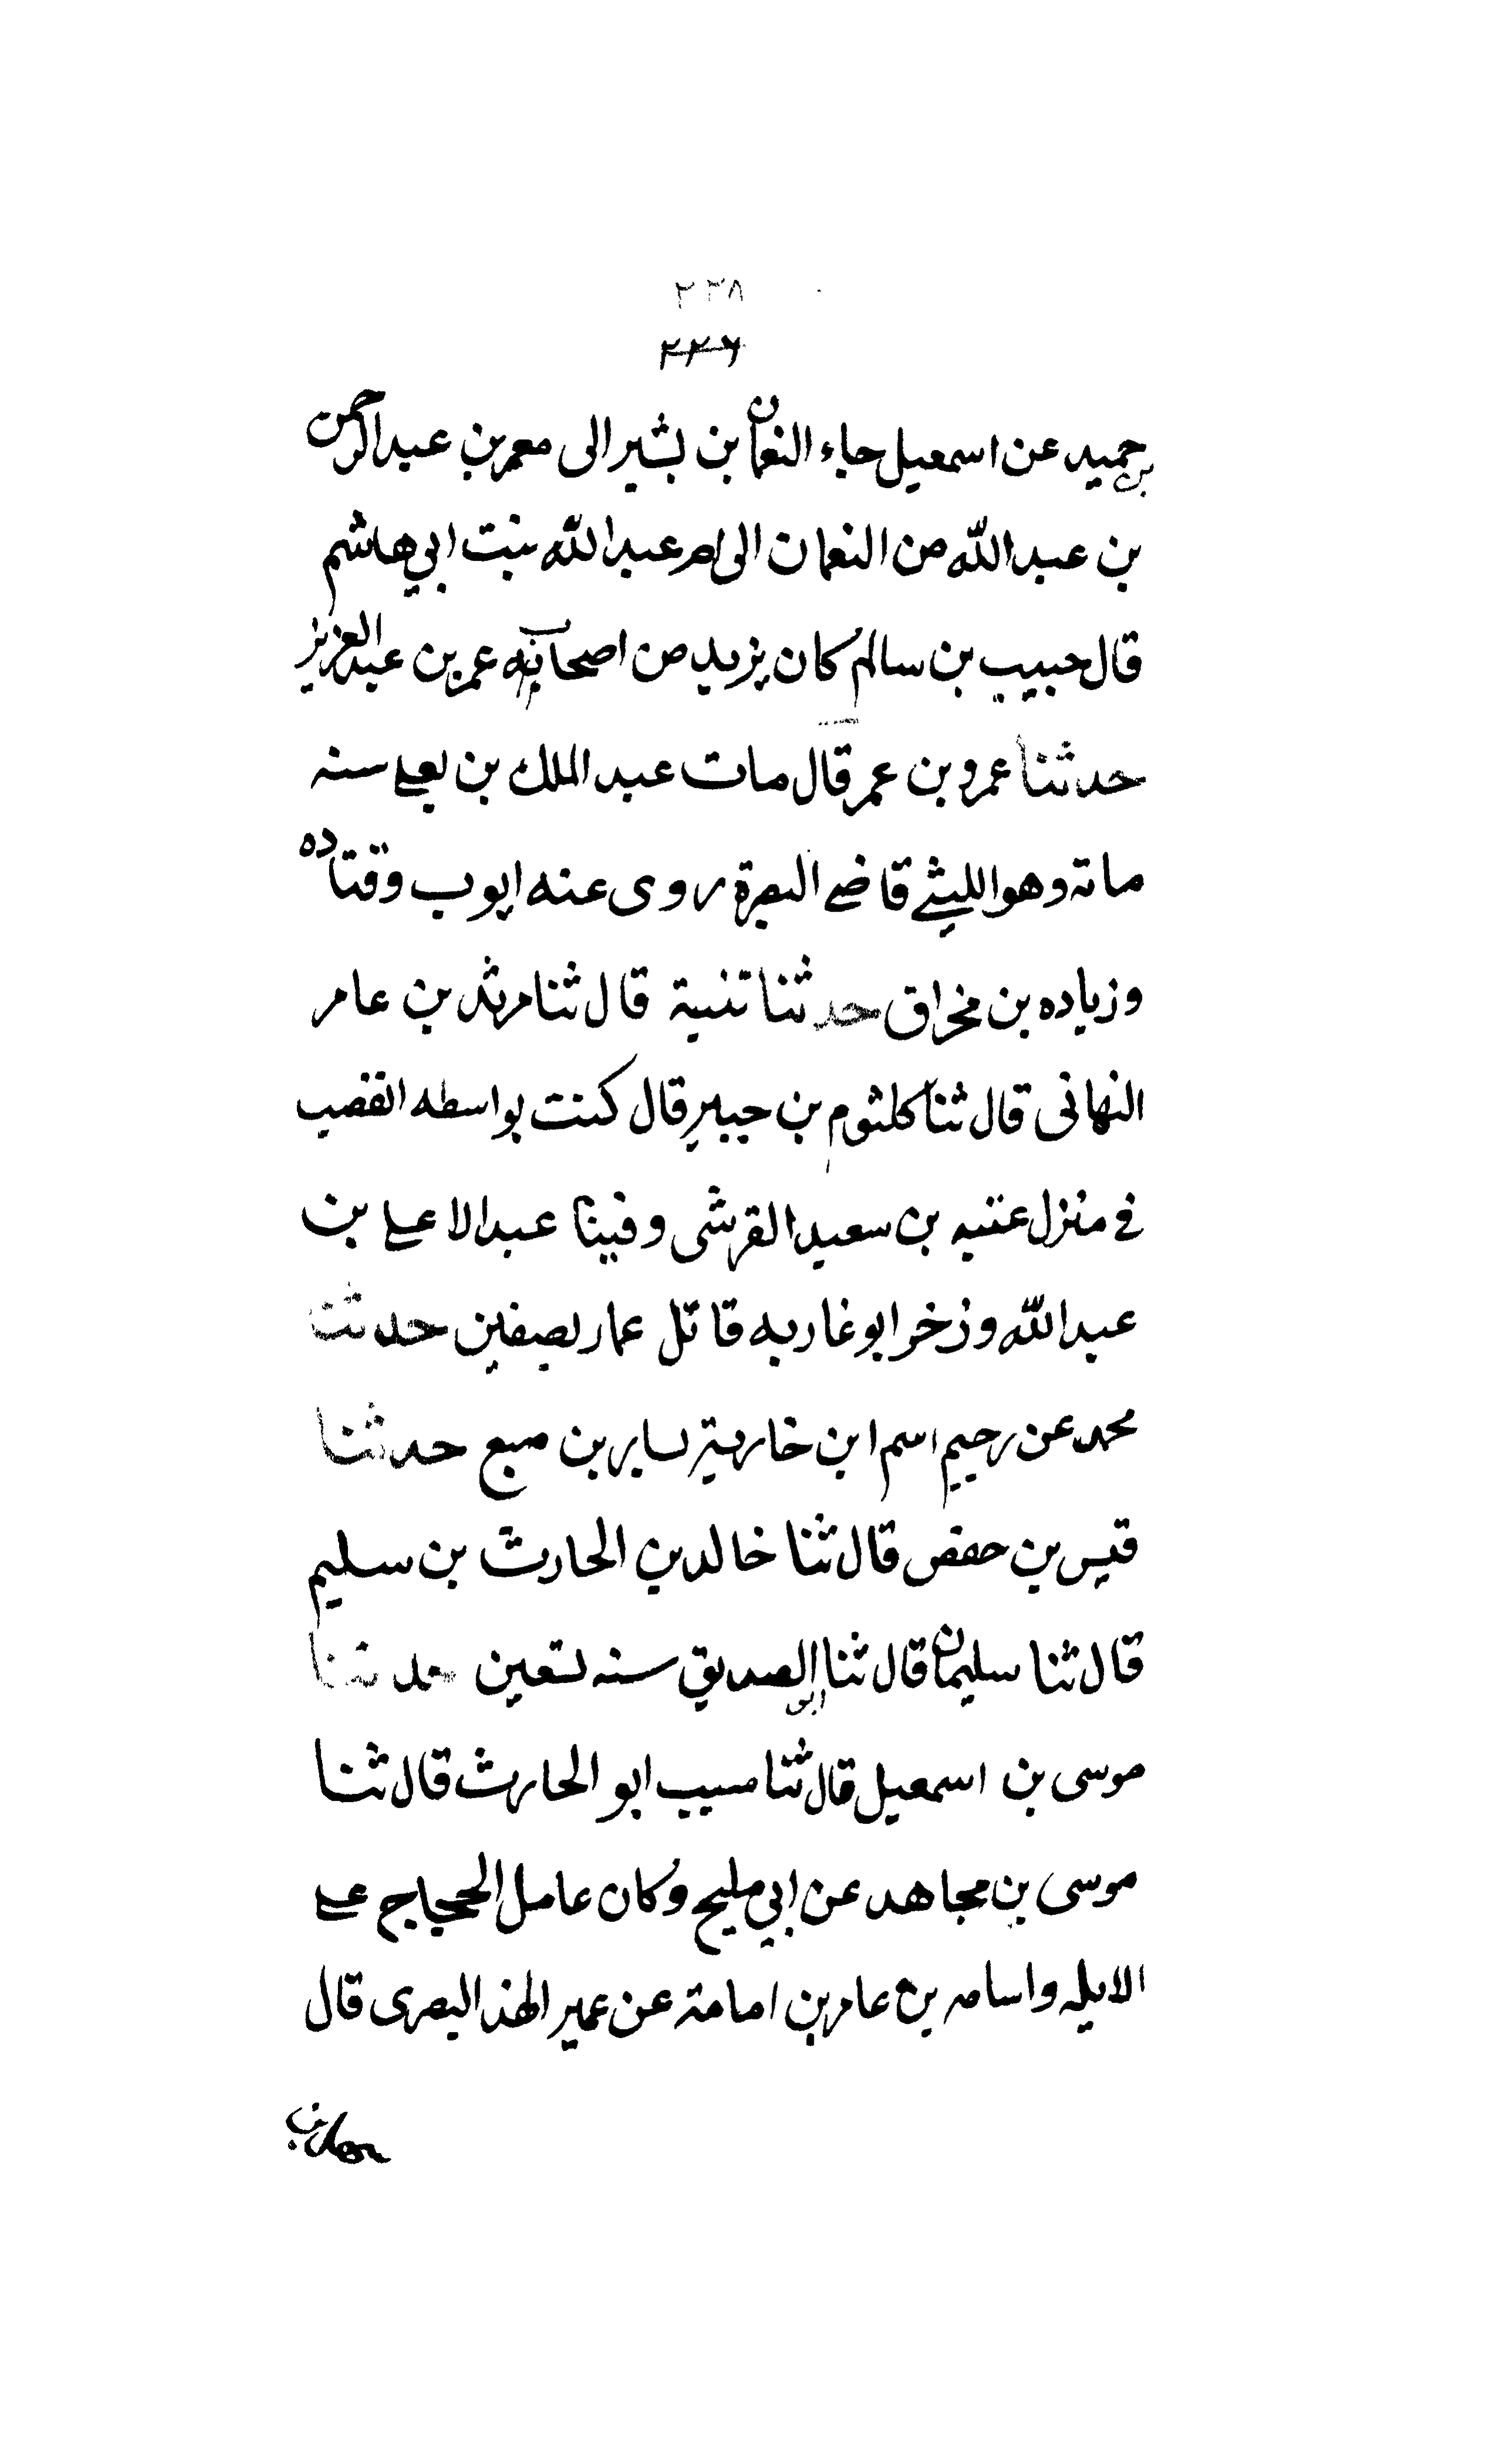 ٢٣٨
٢٢٦
بن حميد عن اسمعيل جاء النعمان بن بشير الى معمر بن عبد الرحمن
بن عبد الله من النعمان الى ام عبد الله بنت ابي هاشم
قال حبيب بن سالم كان يزيد من اصحابه عمر بن عبد العزيز
حدثنا عمرو بن عمر قال مات عبد الملك بن يعلي سنه
مائة وهو الليثي قاضي البصرة روى عنه ايوب وقتاده
وزياده بن مخراق حدثنا تنبية قال ثنا مرثد بن عامر
النهانى قال ثنا كلثوم بن جبير قال كنت بواسطه القصب
في منزل عنبسه بن سعيد القرشى وفينا عبد الاعلي بن
عبد الله وزخر ابو غاريه قاتل عمار بصفين حدثت
محمد عن رحيم اسم ابن خارية يسار بن سبع حدثنا
قيس بن حفص قال ثنا خالد بن الحارث بن سليم
قال ثنا سليمان قال ثنا ابى الصديق سنه تسعين حدثنا
موسى بن اسمعيل قال ثنا سبيب ابو الحارث قال ثنا
موسى بن مجاهد عن ابي مليح وكان عامل الحجاج علي
الايله واسامه بن عامر بن امامة عن عمير الهذ البصرى قال